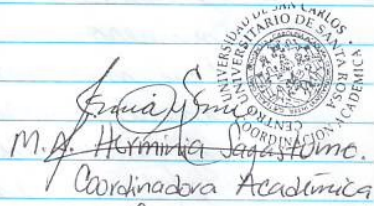 UNIVERSIDAD DE SAN CARLOS
CENTRO UNIVERSITARIO DE SANTA ROSA
COORDINACION ACADEMICA
M.A. Herminia Sagastume.
Coordinadora Académica